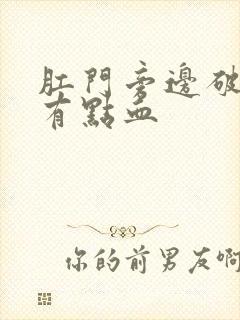 肛門旁邊破
有點血
你的前男友啊